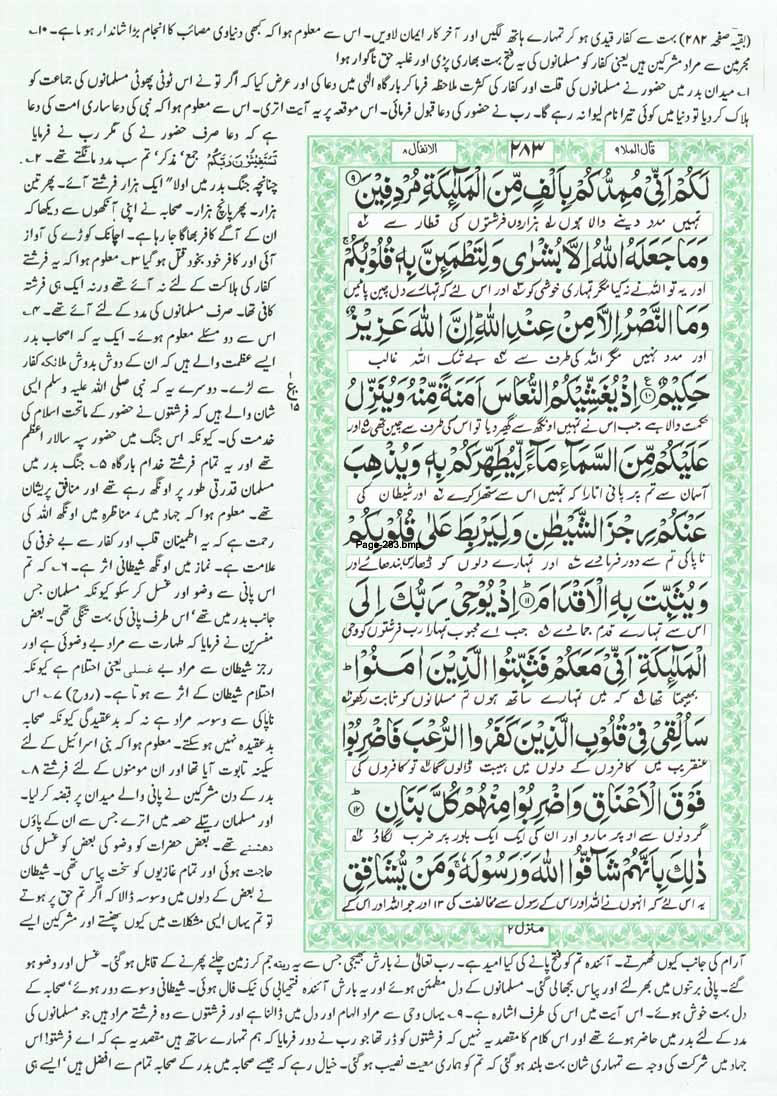 (بقیہ صفحہ ۲۸۲) بہت سے کفار قیدی ہو کر تمہارے ہاتھ لگیں اور آخر کار ایمان لاویں۔ اس سے معلوم ہوا کہ کبھی دنیاوی مصائب کا انجام بڑا شاندار ہوتا ہے۔ ۱۰۔
مجرمین سے مراد مشرکین ہیں یعنی کفار کو مسلمانوں کی یہ فتح بہت بھاری پڑی اور غلبہ حق ناگوار ہوا
۱۔ میدان بدر میں حضور نے مسلمانوں کی قلت اور کفار کی کثرت ملاحظہ فرما کر بارگاہ الٰہی میں دعا کی اور عرض کیا کہ اگر تو نے اس ٹوٹی پھوٹی مسلمانوں کی جماعت کو
ہلاک کر دیا تو دنیا میں کوئی تیرا نام لیوا نہ رہے گا۔ رب نے حضور کی دعا قبول فرمائی۔ اس موقعہ پر یہ آیت اتری۔ اس سے معلوم ہوا کہ نبی کی دعا ساری امت کی دعا
قال الملا ۹
۲۸۳
الانفال ۸
لَكُمْ اَنِّیْ مُمِدُّكُمْ بِاَلْفٍ مِّنَ الْمَلٰٓىٕكَةِ مُرْدِفِیْنَ ۹
تمہیں مدد دینے والا ہوں ہزاروں فرشتوں کی قطار سے
وَ مَا جَعَلَهُ اللّٰهُ اِلَّا بُشْرٰى وَ لِتَطْمَىٕنَّ بِهٖ قُلُوْبُكُمْ ۚ
اور یہ تو اللہ نے نہ کیا مگر تمہاری خوشی کو اور اس لئے کہ تمہارے دل چین پائیں
وَ مَا النَّصْرُ اِلَّا مِنْ عِنْدِ اللّٰهِ ؕ اِنَّ اللّٰهَ عَزِیْزٌ
اور مدد نہیں مگر اللہ کی طرف سے بے شک اللہ غالب
حَكِیْمٌ ۱۰ اِذْ یُغَشِّیْكُمُ النُّعَاسَ اَمَنَةً مِّنْهُ وَ یُنَزِّلُ
حکمت والا ہے جب اس نے تمہیں اونگھ سے گھیر دیا تو اس کی طرف سے چین تھی اور
عَلَیْكُمْ مِّنَ السَّمَآءِ مَآءً لِّیُطَهِّرَكُمْ بِهٖ وَ یُذْهِبَ
آسمان سے تم پر پانی اتارا کہ تمہیں اس سے ستھرا کر دے اور شیطان کی
عَنْكُمْ رِجْزَ الشَّیْطٰنِ وَ لِیَرْبِطَ عَلٰى قُلُوْبِكُمْ
Page-283.bmp
ناپاکی تم سے دور فرما دے اور تمہارے دلوں کو ڈھارس بندھائے اور
وَ یُثَبِّتَ بِهِ الْاَقْدَامَ ۱۱ اِذْ یُوْحِیْ رَبُّكَ اِلَى
اس سے تمہارے قدم جما دے جب اے محبوب تمہارا رب فرشتوں کو وحی
الْمَلٰٓىٕكَةِ اَنِّیْ مَعَكُمْ فَثَبِّتُوا الَّذِیْنَ اٰمَنُوْا ؕ
بھیجتا تھا کہ میں تمہارے ساتھ ہوں تم مسلمانوں کو ثابت رکھو
سَاُلْقِیْ فِیْ قُلُوْبِ الَّذِیْنَ كَفَرُوا الرُّعْبَ فَاضْرِبُوْا
عنقریب میں کافروں کے دلوں میں ہیبت ڈالوں گا تو کافروں کی
فَوْقَ الْاَعْنَاقِ وَ اضْرِبُوْا مِنْهُمْ كُلَّ بَنَانٍ ؕ ۱۲
گردنوں سے اوپر مارو اور ان کی ایک ایک پور پر ضرب لگاؤ
ذٰلِكَ بِاَنَّهُمْ شَآقُّوا اللّٰهَ وَ رَسُوْلَهٗ ۚ وَ مَنْ یُّشَاقِقِ
یہ اس لئے کہ انہوں نے اللہ اور اس کے رسول سے مخالفت کی ۱۳ اور جو اللہ اور اس کے
منزل ۲
ع
۱۵
ہے کہ دعا صرف حضور نے کی مگر رب نے فرمایا
تَسْتَغِیْثُوْنَ رَبَّكُمْ جمع' مذکر' تم سب مدد مانگتے تھے۔ ۲۔
چنانچہ جنگ بدر میں اولا" ایک ہزار فرشتے آئے۔ پھر تین
ہزار۔ پھر پانچ ہزار۔ صحابہ نے اپنی آنکھوں سے دیکھا کہ
ان کے آگے کافر بھاگا جا رہا ہے۔ اچانک کوڑے کی آواز
آئی اور کافر خود بخود قتل ہو گیا ۳۔ معلوم ہوا کہ یہ فرشتے
کفار کی ہلاکت کے لئے نہ آئے تھے ورنہ ایک ہی فرشتہ
کافی تھا۔ صرف مسلمانوں کی مدد کے لئے آئے تھے۔ ۴۔
اس سے دو مسئلے معلوم ہوئے۔ ایک یہ کہ اصحاب بدر
ایسے عظمت والے ہیں کہ ان کے دوش بدوش ملائکہ کفار
سے لڑے۔ دوسرے یہ کہ نبی صلی اللہ علیہ وسلم ایسی
شان والے ہیں کہ فرشتوں نے حضور کے ماتحت اسلام کی
خدمت کی۔ کیونکہ اس جنگ میں حضور سپہ سالار اعظم
تھے اور یہ تمام فرشتے خدام بارگاہ ۵۔ جنگ بدر میں
مسلمان قدرتی طور پر اونگھ رہے تھے اور منافق پریشان
تھے۔ معلوم ہوا کہ جہاد میں' مناظرہ میں اونگھ اللہ کی
رحمت ہے کہ یہ اطمینان قلب اور کفار سے بے خوفی کی
علامت ہے۔ نماز میں اونگھ شیطانی اثر ہے۔ ۶۔ کہ تم
اس پانی سے وضو اور غسل کر سکو کیونکہ مسلمان جس
جانب بدر میں تھے' اس طرف پانی کی بہت تنگی تھی۔ بعض
مفسرین نے فرمایا کہ طہارت سے مراد بے وضوئی ہے اور
رجز شیطان سے مراد بے غسلی یعنی احتلام ہے کیونکہ
احتلام شیطان کے اثر سے ہوتا ہے۔ (روح) ۷۔ اس
ناپاکی سے وسوسہ مراد ہے نہ کہ بدعقیدگی کیونکہ صحابہ
بدعقیدہ نہیں ہو سکتے۔ معلوم ہوا کہ بنی اسرائیل کے لئے
سکینہ تابوت آیا تھا اور ان مومنوں کے لئے فرشتے ۸۔
بدر کے دن مشرکین نے پانی والے میدان پر قبضہ کر لیا۔
اور مسلمان ریتلے حصہ میں اترے جس سے ان کے پاؤں
دھنستے تھے۔ بعض حضرات کو وضو کی بعض کو غسل کی
حاجت ہوئی اور تمام غازیوں کو سخت پیاس تھی۔ شیطان
نے بعض کے دلوں میں وسوسہ ڈالا کہ اگر تم حق پر ہوتے
تو تم یہاں ایسی مشکلات میں کیوں پھنستے اور مشرکین ایسے
آرام کی جانب کیوں ٹھہرتے۔ آئندہ تم کو فتح پانے کی کیا امید ہے۔ رب تعالیٰ نے بارش بھیجی جس سے یہ ریتہ جم کر زمین چلنے پھرنے کے قابل ہو گئی۔ غسل اور وضو ہو
گئے۔ پانی برتنوں میں بھر لئے اور پیاس بجھالی گئی۔ مسلمانوں کے دل مطمئن ہوئے اور یہ بارش آئندہ فتحیابی کی نیک فال ہوئی۔ شیطانی وسوسے دور ہوئے' صحابہ کے
دل بہت خوش ہوئے۔ اس آیت میں اس کی طرف اشارہ ہے۔ ۹۔ یہاں وحی سے مراد الہام اور دل میں ڈالنا ہے اور فرشتوں سے وہ فرشتے مراد ہیں جو مسلمانوں کی
مدد کے لئے بدر میں حاضر ہوئے تھے اور اس کلام کا مقصد یہ نہیں کہ فرشتوں کو ڈر تھا جو رب نے دور فرمایا کہ ہم تمہارے ساتھ ہیں مقصد یہ ہے کہ اے فرشتو! اس
جہاد میں شرکت کی وجہ سے تمہاری شان بہت بلند ہو گئی کہ تم کو ہماری معیت نصیب ہو گئی۔ خیال رہے کہ جیسے صحابہ میں بدر کے صحابہ تمام سے افضل ہیں' ایسے ہی